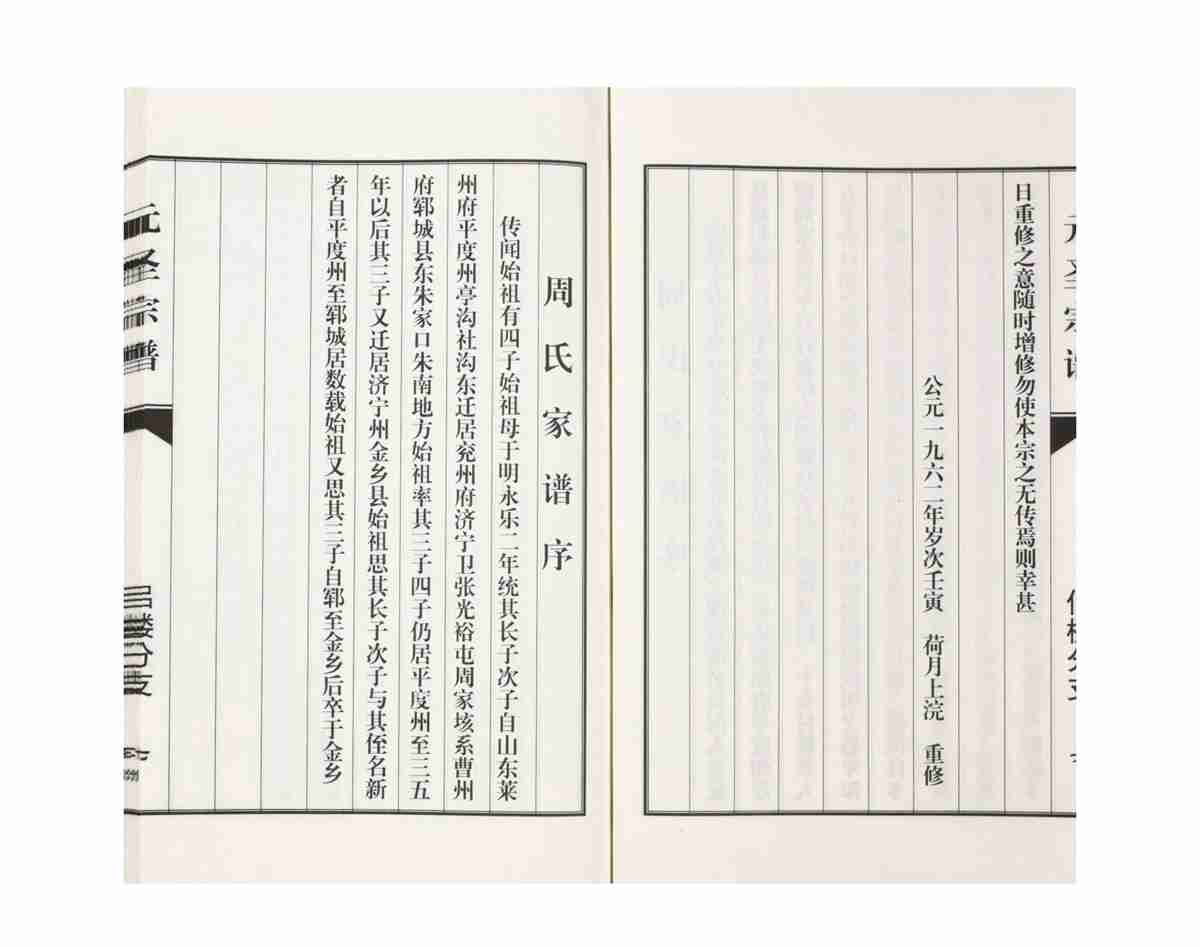 元圣宗谱
日重修之意随时增修勿使本宗之无传焉则幸甚
公元一九六二年岁次壬寅　荷月上浣　重修
周氏家谱序
传闻始祖有四子始祖母于明永乐二年统其长子次子自山东莱
州府平度州亭沟社沟东迁居兖州府济宁卫张光裕屯周家垓系曹州
府郓城县东朱家口朱南地方始祖率其三子四子仍居平度州至三五
年以后其三子又迁居济宁州金乡县始祖思其长子次子与其侄名新
者自平度州至郓城居数载始祖又思其三子自郓至金乡后卒于金乡
元圣宗谱
吕楼分支